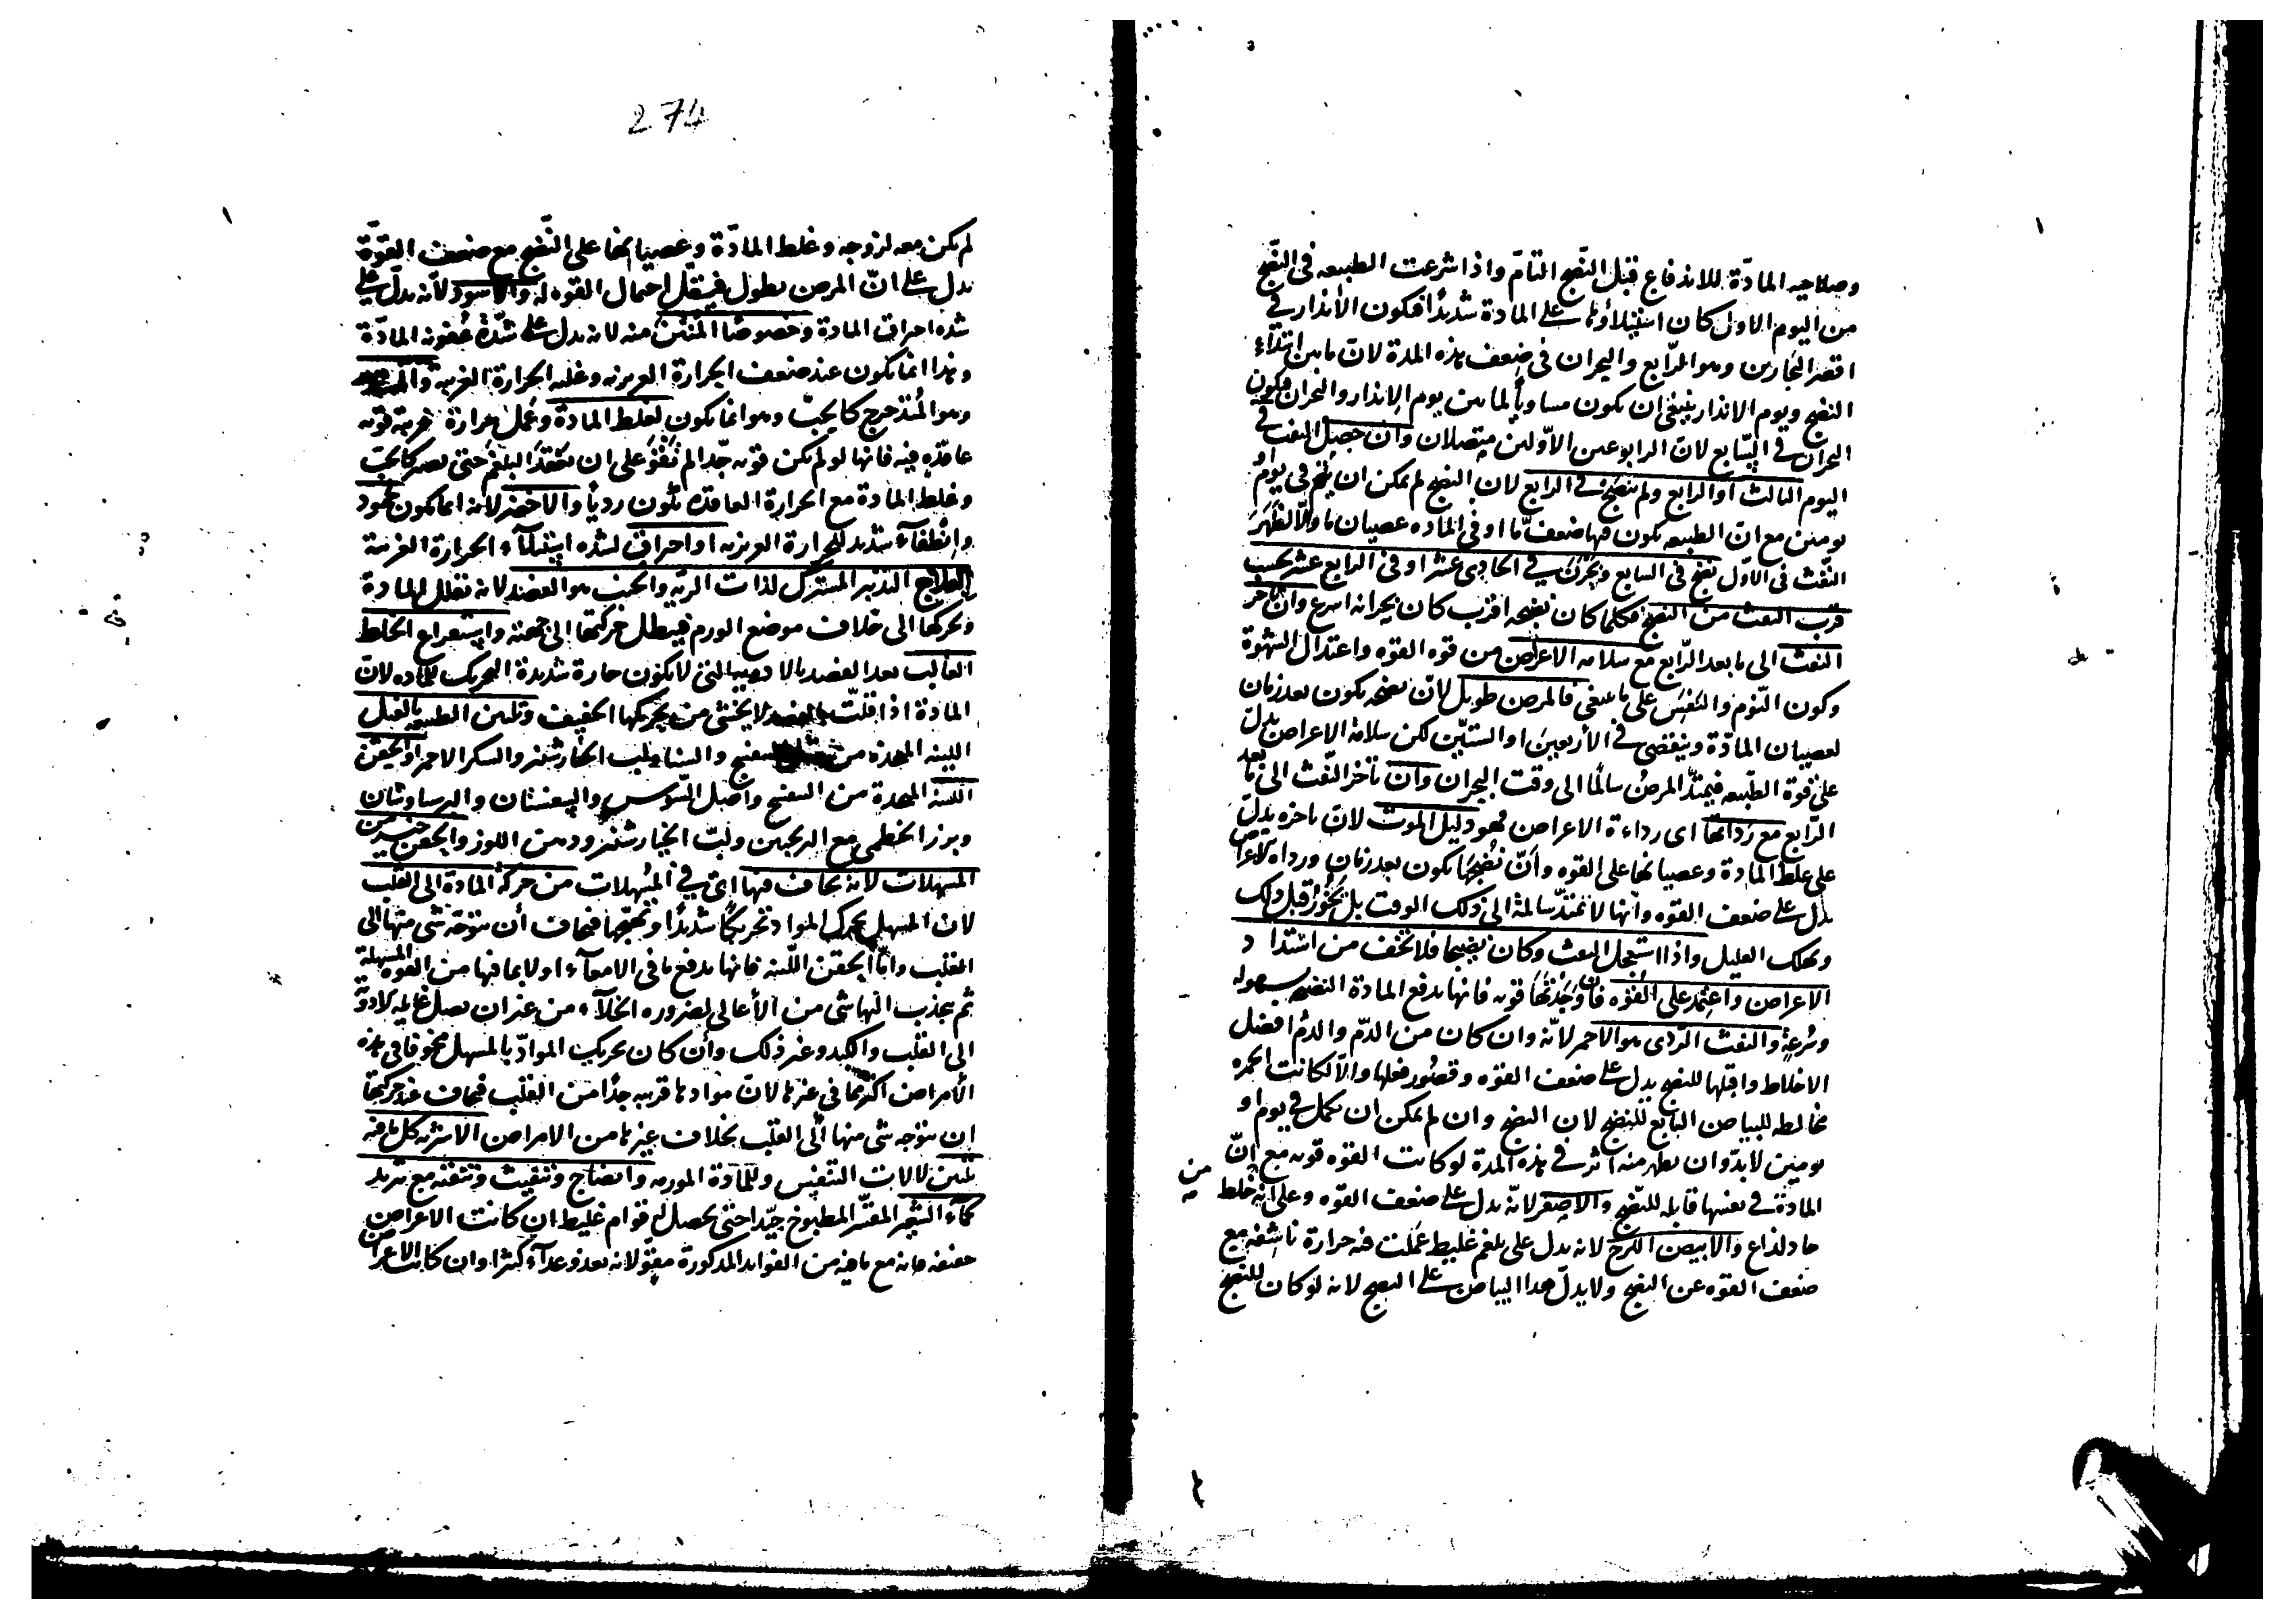 وصلاحيه المادّة للاندفاع قبل النضج التامّ واذا شرعت الطبيعه فى النضج
من اليوم الاول كان استيلاؤها على المادة شديدًا فيكون الانذار فى
اقصر البحارين وهو الرّابع والبحران فى ضعف هذه المدة لانّ مابين ابتداء
النضج ويوم الانذار ينبغى ان يكون مساويًا لما بين يوم الانذار والبحران فيكون
البحران فى السّابع لانّ الرابوعين الاوّلين متصلان وان حصل النفث فى
اليوم الثالث او الرابع ولم ينضج فى الرابع لان النضج لم يمكن ان يتمّ فى يوم او
يومين مع انّ الطبيعه يكون فيها ضعف مّا او فى الماده عصيان ما والّا لظهر
النّفث فى الاوّل نضج فى السابع وبحرن فى الحادى عشر او فى الرابع عشر بحسب
قرب النفث من النضج فكلما كان نضجه اقرب كان بحرانه اسرع وان تاخر
النفث الى ما بعد الرّابع مع سلامه الاعراض من قوه القوه واعتدال الشهوة
وكون النّوم والتنفس على ما ينبغى فالمرض طويل لانّ نضجه يكون بعد زمان
لعصيان المادّة وينقضى فى الاربعين او الستّين لكن سلامة الاعراض يدلّ
على قوة الطّبيعه فيمتدّ المرض سالمًا الى وقت البحران وان تاخر النّفث الى ما بعد
الرّابع مع رداتها اى رداءة الاعراض فهو دليل الموت لانّ تاخره يدلّ
على غلظ المادة وعصيانها على القوه وانّ نضجها يكون بعد زمان ورداه الاعراض
يدل على ضعف القوه وانها لا تمتدّ سالمة الى ذلك الوقت بل تخور قبل ذلك
ويهلك العليل واذا استعجل النفث وكان نضيجا فلا تخف من اشتداد
الاعراض واعتمد على القوّه فان وجدتها قويه فانها يدفع المادة النضجه بسهوله
وسرعةٍ والنفث الردى هو الاحمر لانّه وان كان من الدّم والدم افضل
الاخلاط واقبلها للنضج يدل على ضعف القوّه وقصور فعلها والّا لكانت الحمره
مخالطه للبياض التابع للنضج لان النضج وان لم يمكن ان يكمل فى يوم او
يومين لا بدّ وان يظهر منه اثر فى هذه المدة لو كانت القوه قويه مع انّ
المادة فى نفسها قابله للنّضج والاصفر لانّه يدل على ضعف القوّه وعلى انه من خلط
حاد لذاع والابيض اللزج لانه يدل على بلغم غليظ عملت فيه حرارة ناشفه مع
ضعف القوه عن النضج ولا يدلّ هذا البياض على النضج لانه لو كان للنضج
274
لم يكن معه لزوجه وغلظ المادّة وعصيانها على النّضج مع ضعف القوّة
يدل على انّ المرض يطول فيقلّ احتمال القوه له والاسود لانّه يدلّ على
شده احراق المادة وخصوصًا المنتن منه لانه يدل على شدّة عفونه المادّة
وهذا انما يكون عند ضعف الحرارة الغريزيه وغلبه الحرارة الغريبه
وهو المتدحرج كالحبّ وهو انما يكون لغلظ المادة وعمل حرارة غريبه قويه
عاقده فيه فانها لو لم يكن قويه جدّا لم تقو على ان تعقد البلغم حتى يصير كالحب
وغلظ المادة مع الحرارة العاقده يكون رديًا والاخضر لانه انما يكون لجمود
وانطفآء شديد للحرارة الغريزيه او احراق لشده استيلآء الحرارة الغريبة
العلاج التدبير المشترك لذات الريّه والجنب هو الفصد لانه تقلل المادة
وتحركها الى خلاف موضع الورم فيبطل حركتها الى جهته واستفراغ الخلط
الغالب بعد الفصد بالادويه التى لا يكون حارة شديدة التحريك للماده لانّ
المادة اذا قلّت بالفصد لا يخشى من تحريكها الخفيف وتليين الطبيعه بالفتل
اللينه المتخذة من البنفسج والسنا ولب الخيارشنبر والسكر الاحمر او الحقن
اللينه المتخذة من البنفسج واصل السّوس والسبستان والبرساوشان
وبزر الخطمى مع الترنجبين ولبّ الخيارشنبر ودهن اللوز والحقن خير من
المسهلات لانه يخاف فيها اى فى المسهلات من حركة المادة الى القلب
لان المسهل يحرك المواد تحريكًا شديدًا ويهيجها فيخاف أن يتوجّه شى منها الى
القلب وامّا الحقن اللّينه فانها يدفع ما فى الامعآء اولا بما فيها من القوه المسهلة
ثم يجذب اليها شى من الأعالى لضروره الخلآء من غير ان يصل غايله الادويّه
الى القلب والكبد وغير ذلك وأن كان تحريك الموادّ بالمسهل مخوفا فى هذه
الأمراض اكثر مما فى غيرها لانّ موادها قريبه جدًا من القلب فيخاف عند حركتها
ان يتوجه شى منها الى القلب بخلاف غيرها من الامراض الاشربه كل ما فيه
تليين لالات التنفس وللمادّة المورمه وانضاج وتنفيث وتنقيه مع تبريد
كمآء الشعير المقشّر المطبوخ جيّدا حتى يحصل له قوام غليظ ان كانت الاعراض
خفيفه فانه مع ما فيه من الفوايد المذكورة مقوّ لانه يغذو غدآء كثيرا وان كانت الاعراض